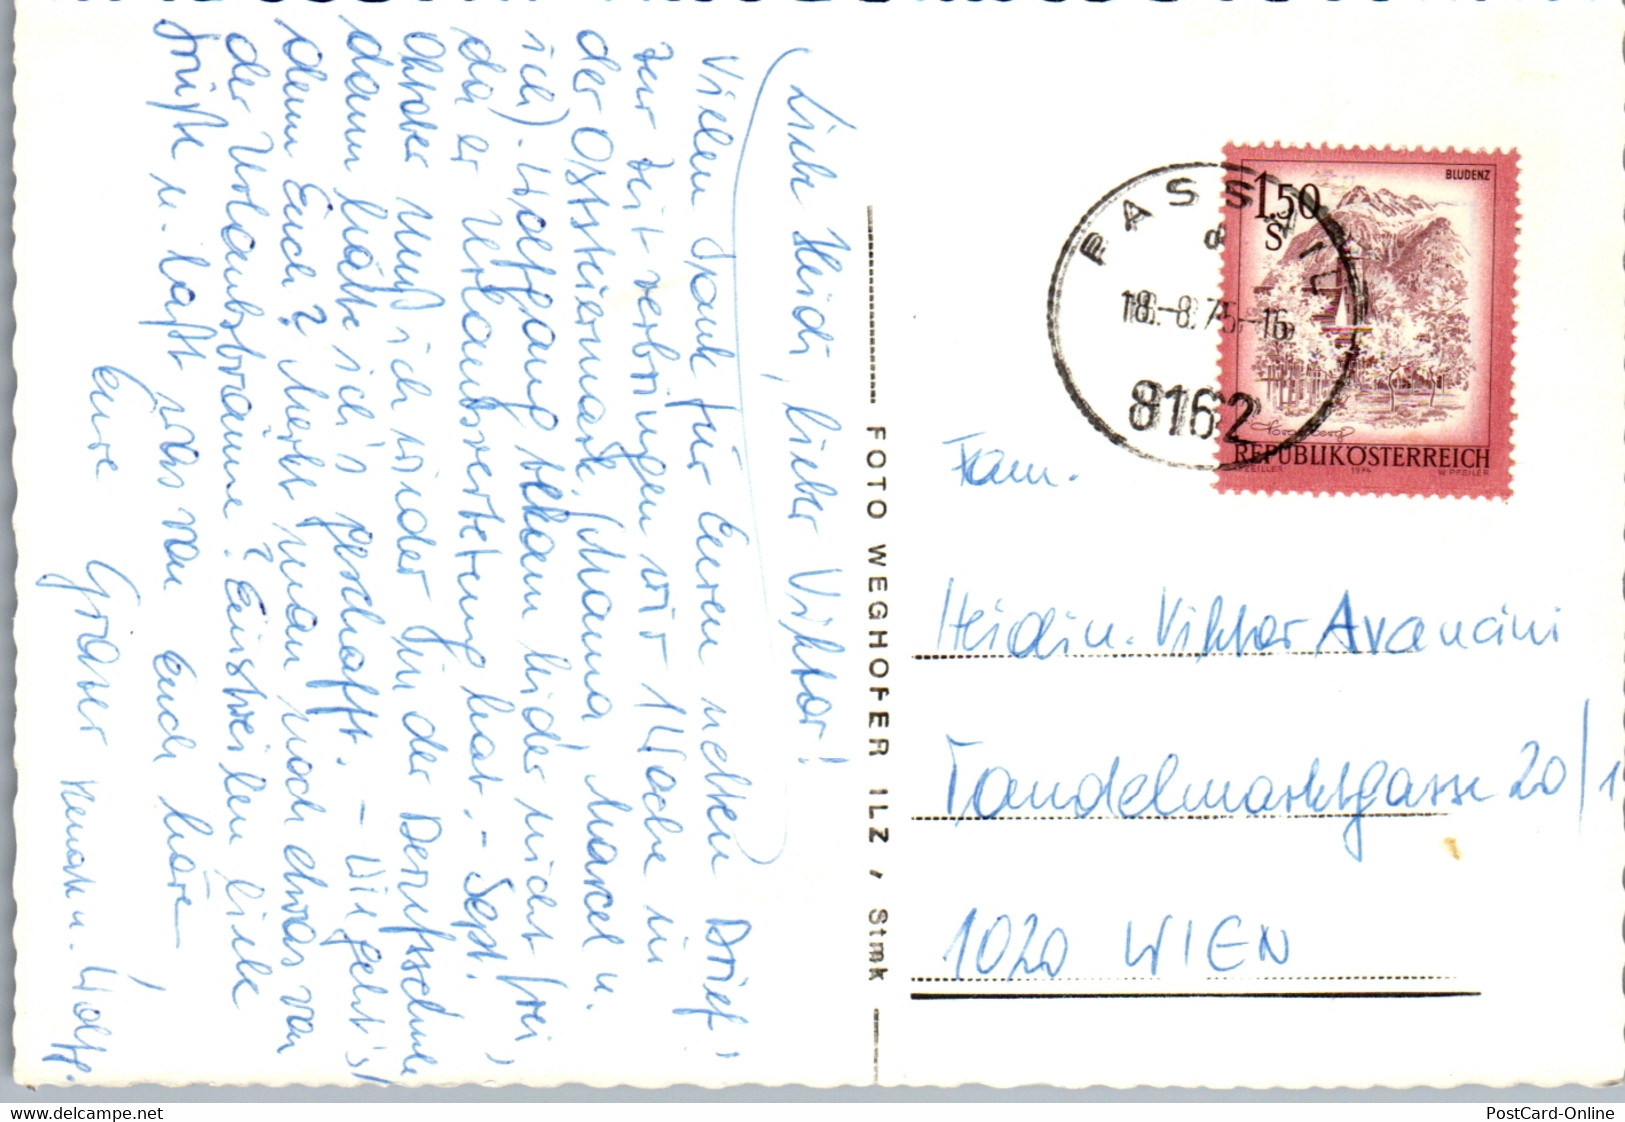 Liebe Heidi, lieber Viktor!
Vielen Dank für Euren netten Brief!
Zur Zeit verbringen wir 1 Woche in
der Oststeiermark (Mama, Marcel u.
ich). Wolfgang bekam leider nicht frei,
da er Urlaubsvertretung hat. - Sept.
Oktober muß ich wieder in der Berufsschule
dann hätte ich's geschafft. - Wie geht's
denn Euch? Merkt man noch etwas von
der Urlaubsbräune? Einstweilen liebe
Grüße u. laßt was von Euch hören
Eure
u. Wolfg.
FOTO WEGHOFER ILZ, Stmk
PASSAIL
18.-8.75-16
8162
BLUDENZ
1.50
S
REPUBLIK ÖSTERREICH
ZEILLER 1974 W. PFEILER
Fam.
Heidi u. Viktor Avancini
Tandelmarktgasse 20/1
1020 WIEN
www.delcampe.net
PostCard-Online